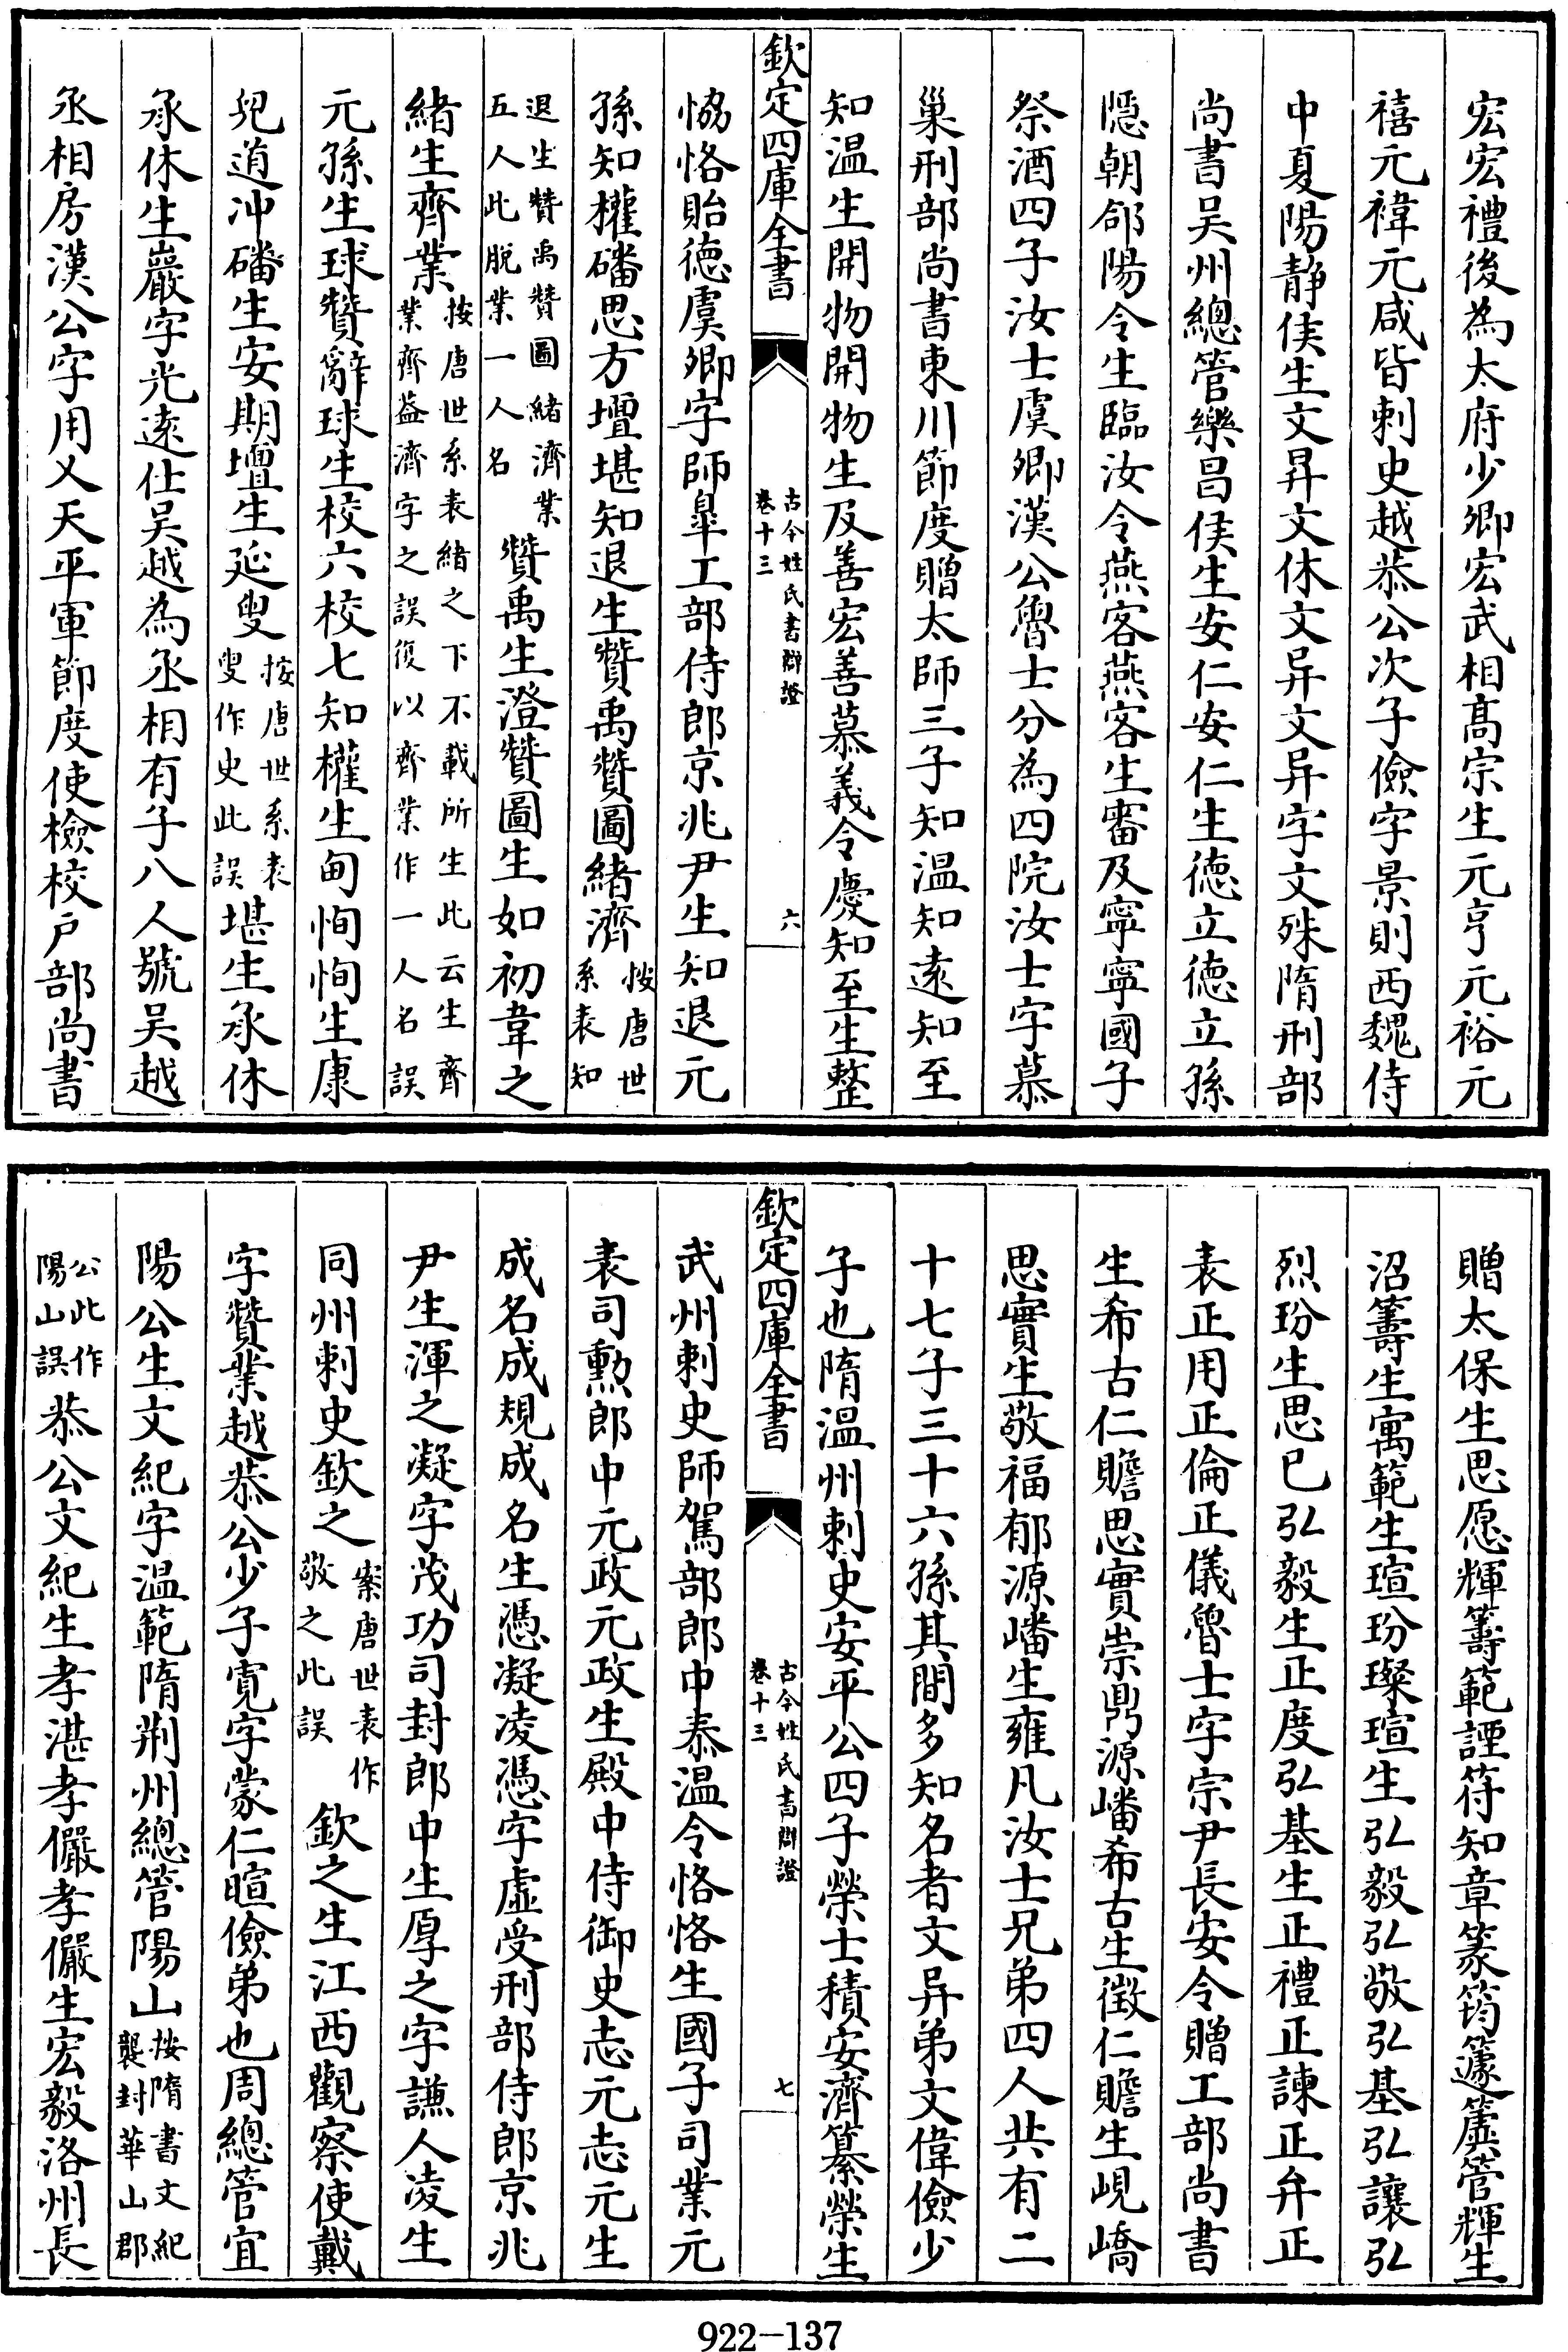 宏宏禮後為太府少卿宏武相髙宗生元亨元裕元
禧元禕元咸皆刺史越恭公次子儉字景則西魏侍
中夏陽靜侯生文昇文休文异文异字文殊隋刑部
尚書吴州總管樂昌侯生安仁安仁生徳立徳立孫
隱朝郃陽令生臨汝令燕客燕客生審及寧寧國子
祭酒四子汝士虞卿漢公魯士分為四院汝士字慕
巢刑部尚書東川節度贈太師三子知温知逺知至
知温生開物開物生及善宏善慕義令慶知至生整
欽定四庫全書
古今姓氏書辯證
卷十三
六
恊恪貽徳虞卿字師臯工部侍郎京兆尹生知退元
孫知權磻思方壇堪知退生贊禹贊圖緒濟按唐世系表知
退生贊禹贊圖緒濟業五人此脱業一人名贊禹生澄贊圖生如初韋之
緒生齊業按唐世系表緒之下不載所生此云生齊業齊葢濟字之誤復以齊業作一人名誤
元孫生球贊辭球生校六校七知權生甸恂恂生康
兒道冲磻生安期壇生延叟按唐世系表叟作史此誤堪生承休
承休生巖字光逺仕吴越為丞相有子八人號吴越
丞相房漢公字用乂天平軍節度使檢校戸部尚書
贈太保生思愿輝籌範諲符知章篆筠籧簴管輝生
沼籌生寓範生瑄玢璨瑄生弘毅弘敬弘基弘讓弘
烈玢生思已弘毅生正度弘基生正禮正諫正弁正
表正用正倫正儀魯士字宗尹長安令贈工部尚書
生希古仁贍思實崇鼎源嶓希古生徵仁贍生峴嶠
思實生敬福郁源嶓生雍凡汝士兄弟四人共有二
十七子三十六孫其間多知名者文异弟文偉儉少
子也隋温州刺史安平公四子榮士積安濟纂榮生
欽定四庫全書
古今姓氏書辯證
卷十三
七
武州刺史師駕部郎中泰温令恪恪生國子司業元
表司勲郎中元政元政生殿中侍御史志元志元生
成名成規成名生憑凝凌憑字虚受刑部侍郎京兆
尹生渾之凝字茂功司封郎中生厚之字謙人凌生
同州刺史欽之案唐世表作敬之此誤欽之生江西觀察使戴
字贊業越恭公少子寛字蒙仁暄儉弟也周總管宜
陽公生文紀字温範隋荆州總管陽山按隋書文紀襲封華山郡
公此作陽山誤恭公文紀生孝湛孝儼孝儼生宏毅洛州長
922-137